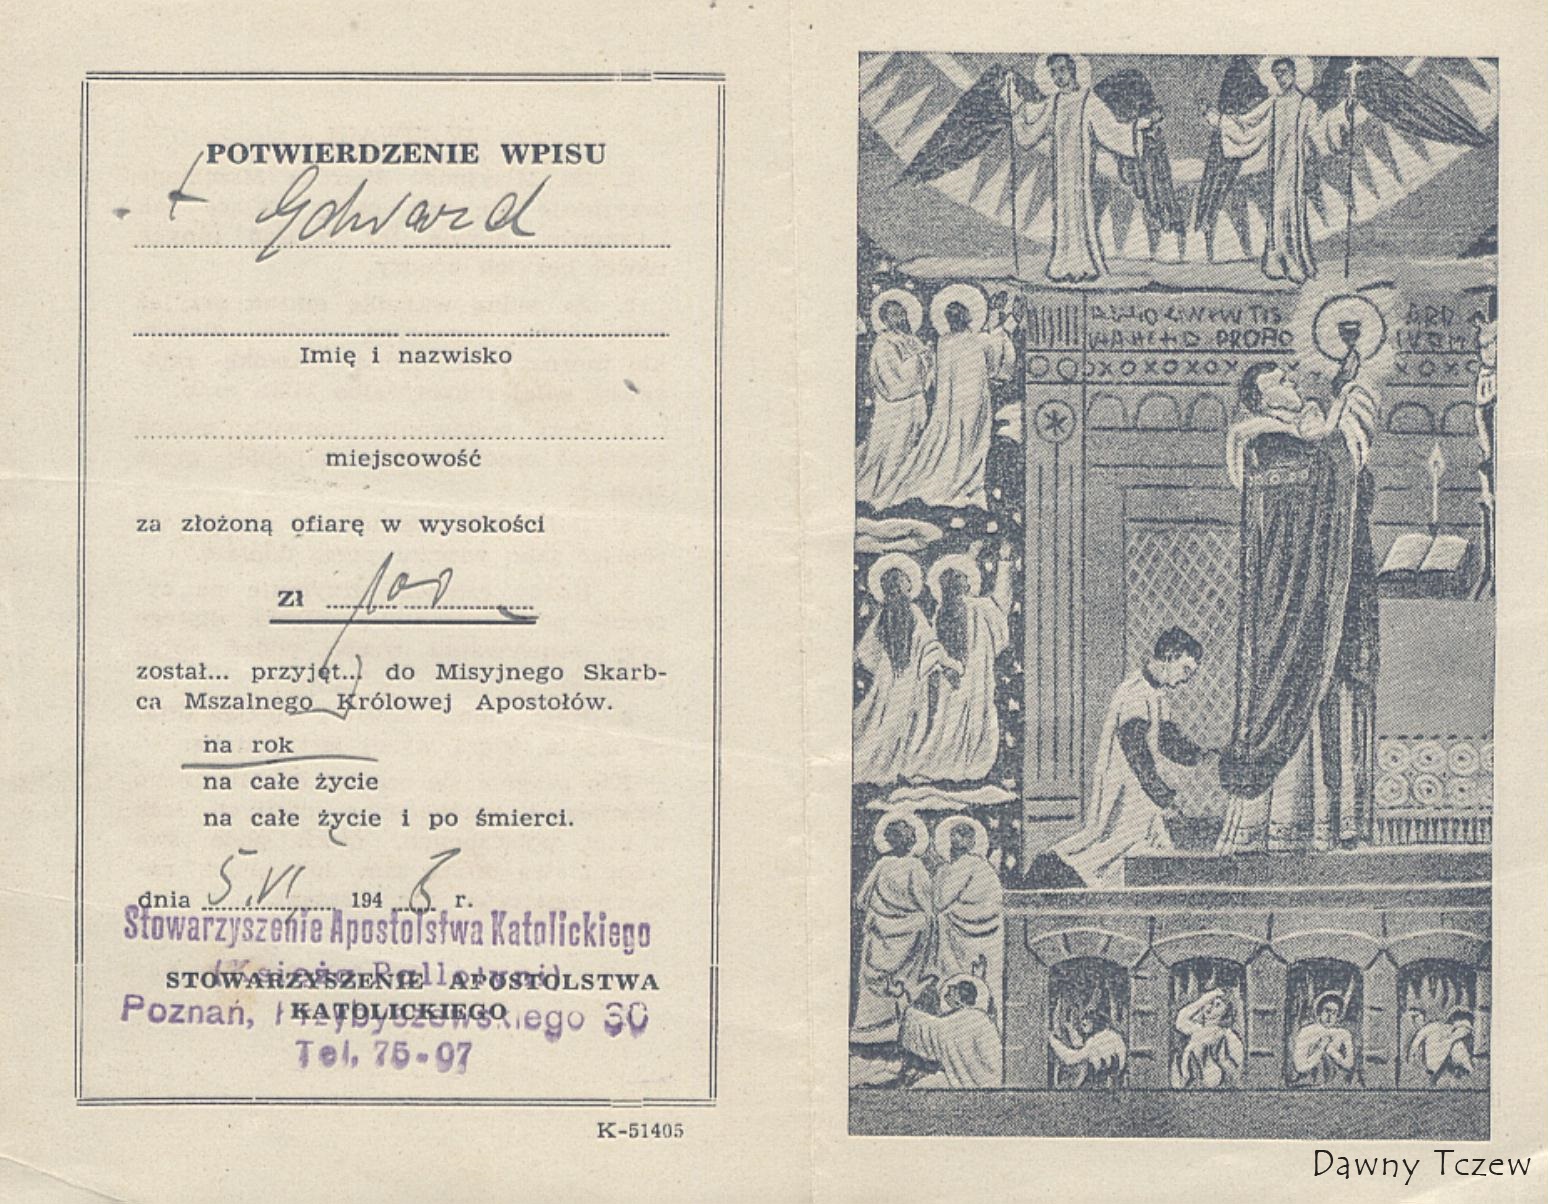 POTWIERDZENIE WPISU
+ Edward
Imię i nazwisko
miejscowość
za złożoną ofiarę w wysokości
Zł 100
został... przyjęt... do Misyjnego Skarb-
ca Mszalnego Królowej Apostołów.
na rok
na całe życie
na całe życie i po śmierci.
dnia 5.VI. 1946 r.
Stowarzyszenie Apostolstwa Katolickiego
(Księża Pallotyni)
STOWARZYSZENIE APOSTOLSTWA
KATOLICKIEGO
Poznań, Przybyszewskiego 30
Tel. 75-07
K-51405
Dawny Tczew